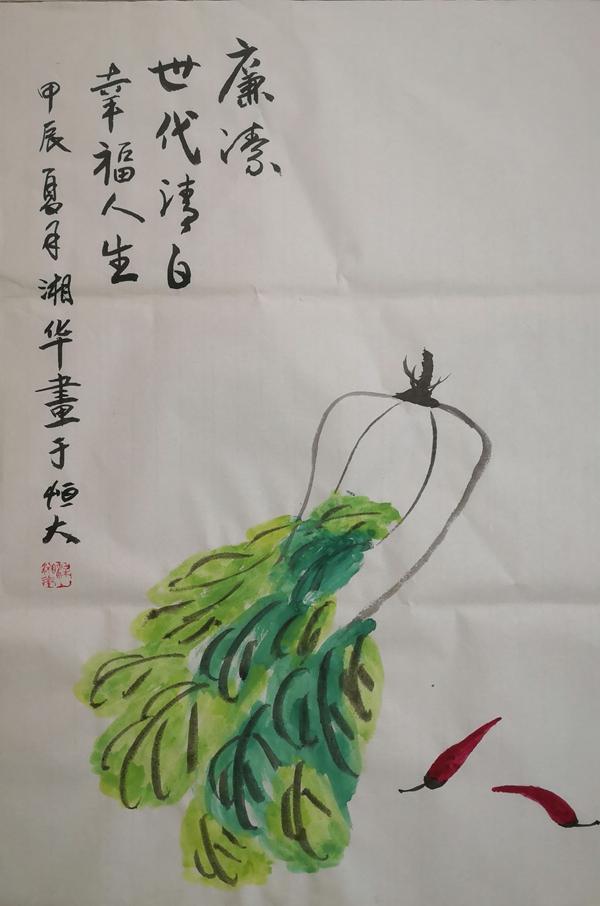 廉潔
世代清白
幸福人生
甲辰夏月湘华畫于恒大